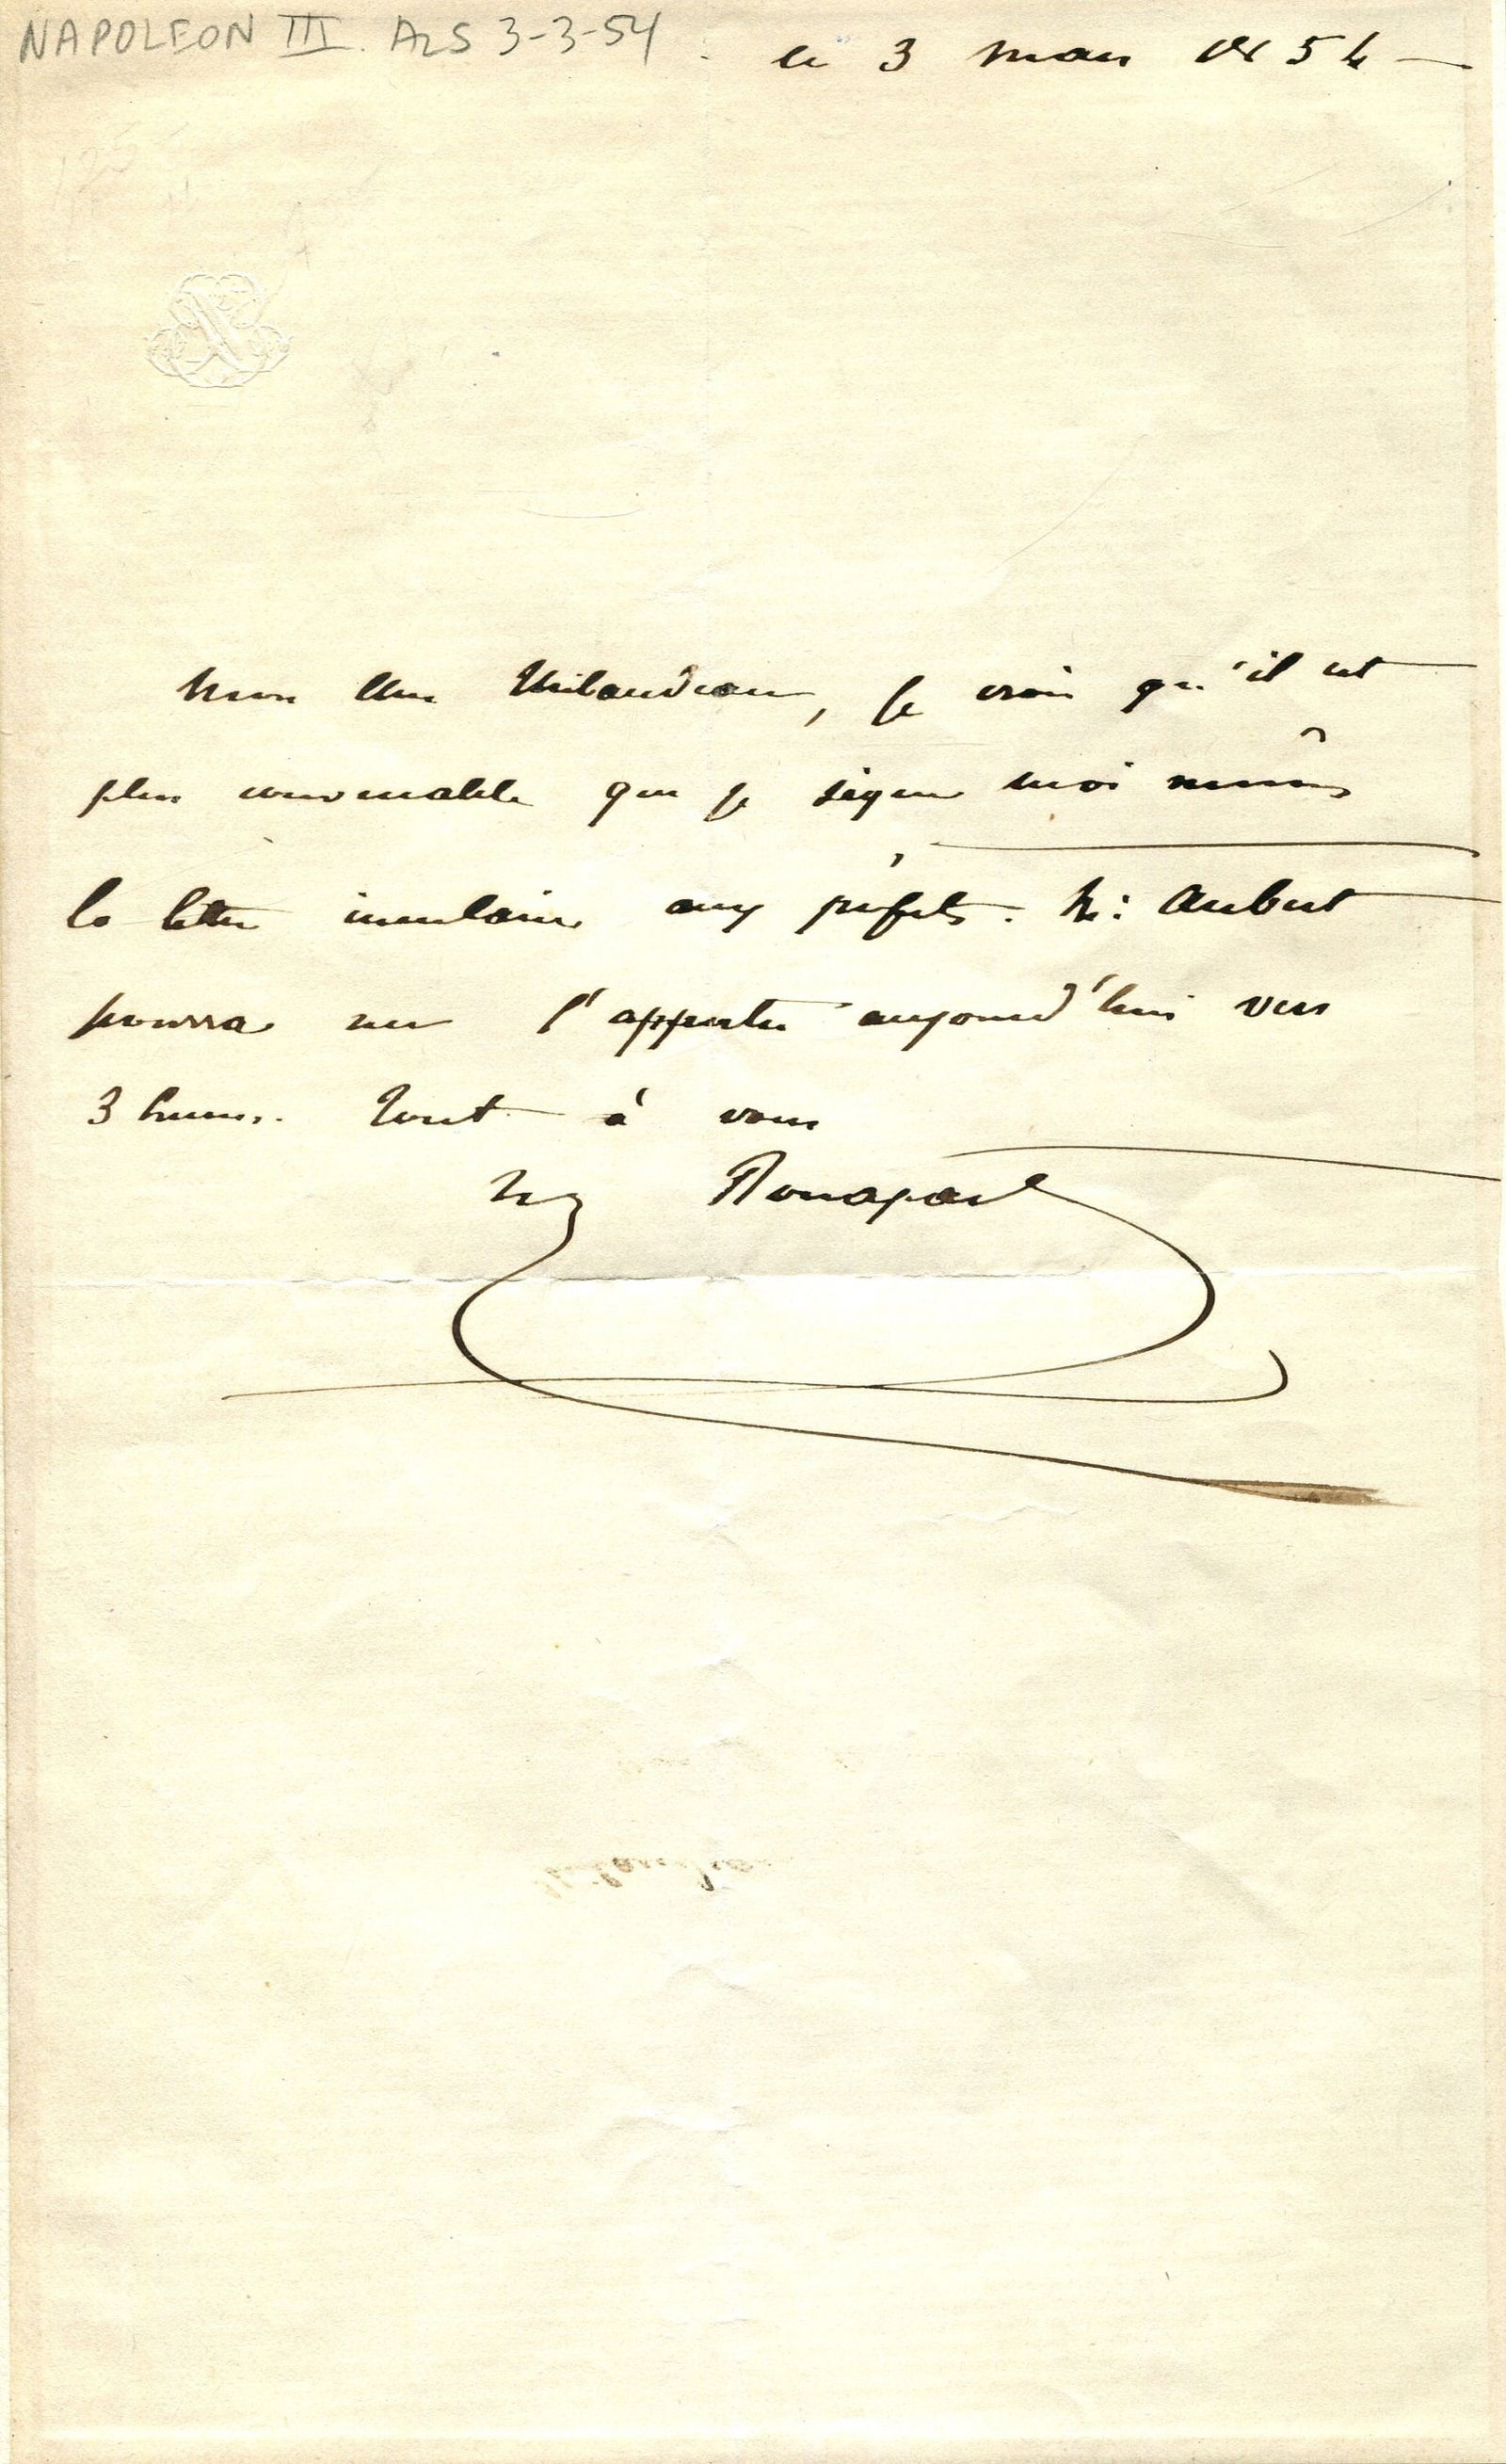 NAPOLEON III. ALS 3-3-54
le 3 mars 1854
Mon cher Thibaudeau, je crois qu'il est
plus convenable que je signe moi même
la lettre circulaire aux préfets. M: Aubert
pourra me l'apporter aujourd'hui vers
3 heures. Tout à vous
Bonaparte